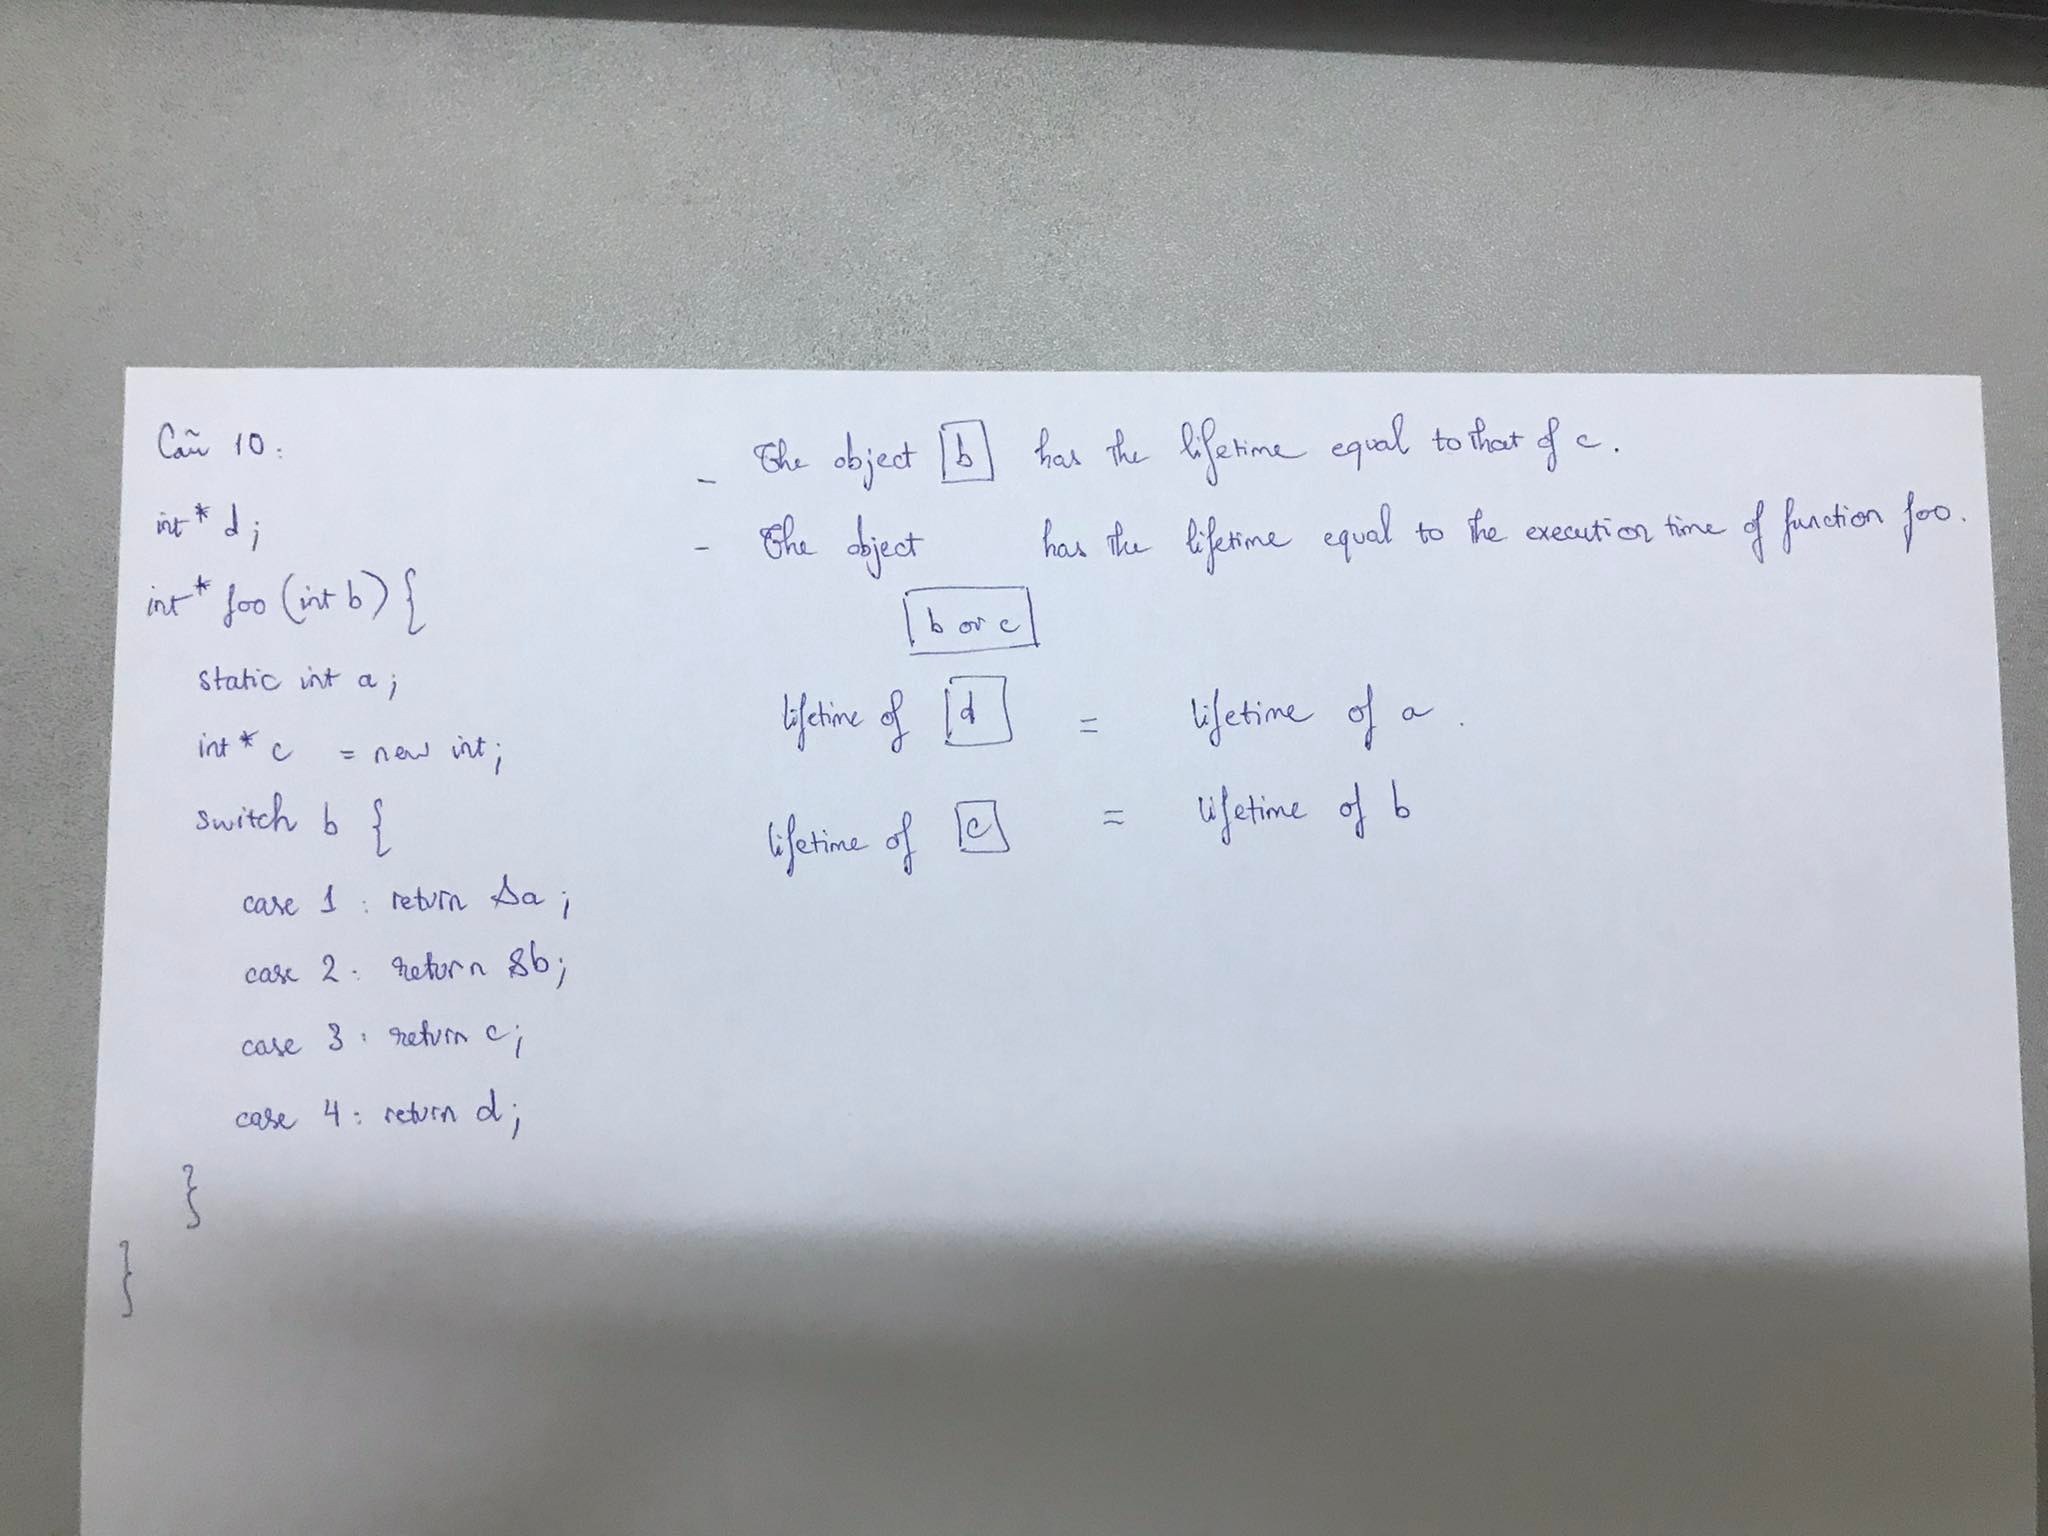 Câu 10:
int* d;
int* foo (int b) {
static int a;
int* c = new int;
switch b {
case 1: return &a;
case 2: return &b;
case 3: return c;
case 4: return d;
}
}
- The object b has the lifetime equal to that of c.
- The object has the lifetime equal to the execution time of function foo.
b or c
lifetime of d = lifetime of a.
lifetime of c = lifetime of b